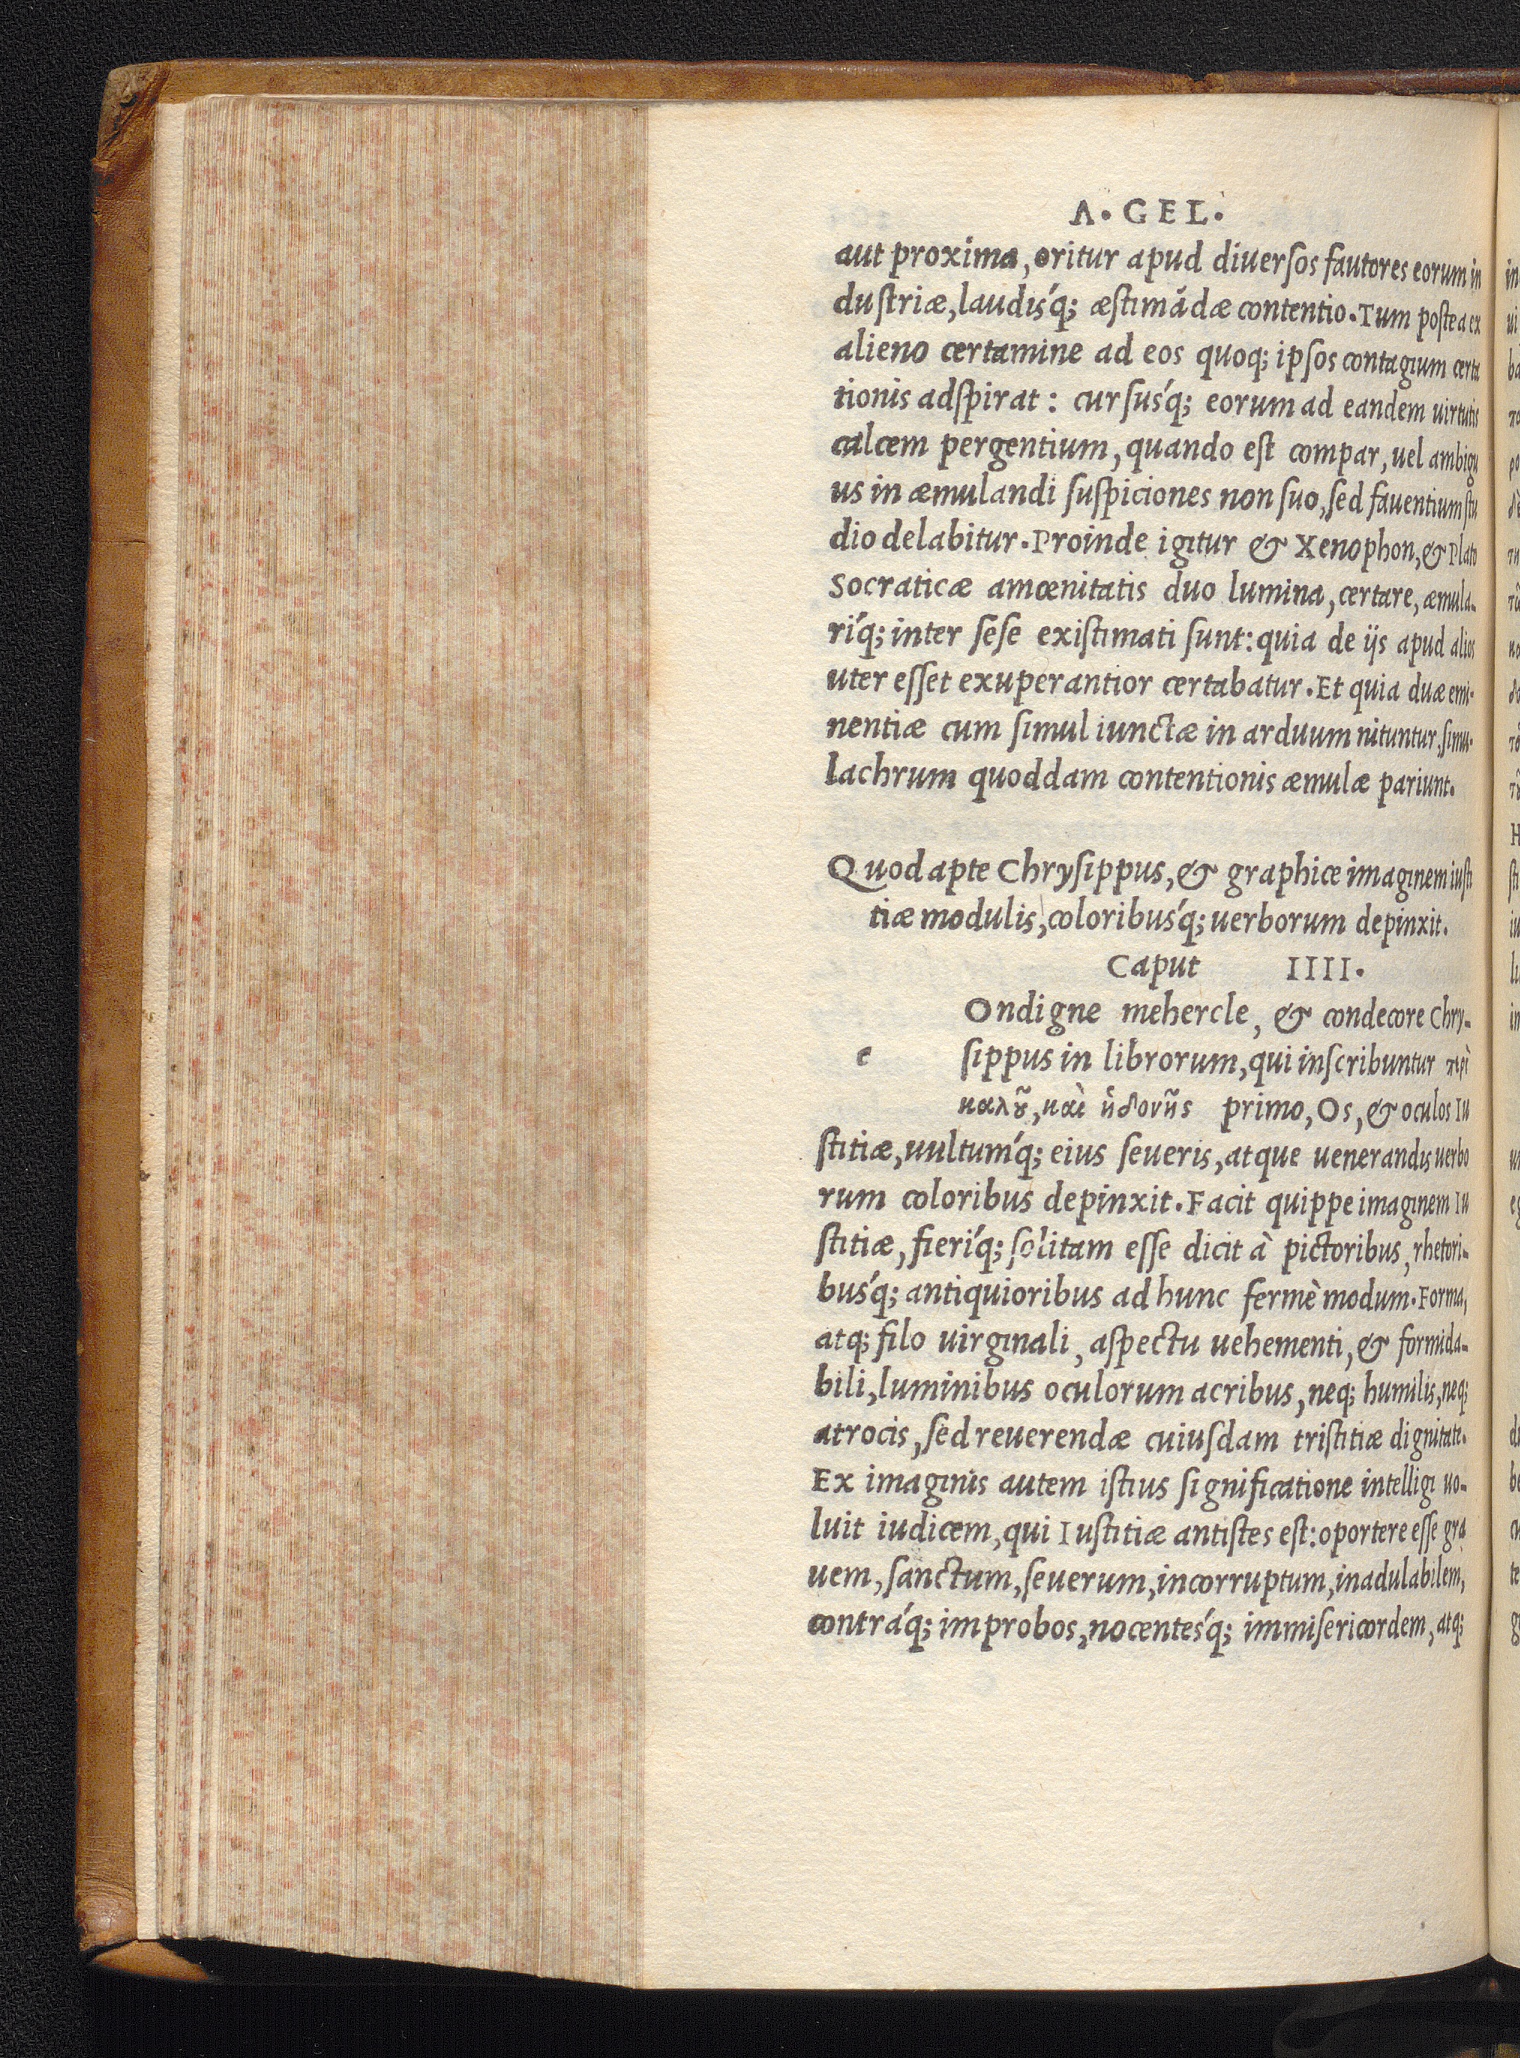 A. GEL.
aut proxima, oritur apud diuersos fautores eorum in
dustriæ, laudisq́; æstimādæ contentio. Tum postea ex
alieno certamine ad eos quoq; ipsos contagium certa
tionis adspirat: cursusq́; eorum ad eandem uirtutis
calcem pergentium, quando est compar, uel ambigu
us in æmulandi suspiciones non suo, sed fauentium stu
dio delabitur. Proinde igitur & Xenophon, & Plato
Socraticæ amœnitatis duo lumina, certare, æmula-
riq́; inter sese existimati sunt: quia de ijs apud alios
uter esset exuperantior certabatur. Et quia duæ emi-
nentiæ cum simul iunctæ in arduum nituntur, simu-
lachrum quoddam contentionis æmulæ pariunt.
Quod apte Chrysippus, & graphice imaginem iusti
tiæ modulis, coloribusq́; uerborum depinxit.
Caput IIII.
Ondigne mehercle, & condecore Chry-
c sippus in librorum, qui inscribuntur περὶ
καλοῦ, καὶ ἡδονῆς primo, Os, & oculos Iu
stitiæ, uultumq́; eius seueris, atque uenerandis uerbo
rum coloribus depinxit. Facit quippe imaginem Iu
stitiæ, fieriq́; solitam esse dicit à pictoribus, rhetori-
busq́; antiquioribus ad hunc fermè modum. Forma,
atq; filo uirginali, aspectu uehementi, & formida-
bili, luminibus oculorum acribus, neq; humilis, neq;
atrocis, sed reuerendæ cuiusdam tristitiæ dignitate.
Ex imaginis autem istius significatione intelligi uo-
luit iudicem, qui Iustitiæ antistes est: oportere esse gra
uem, sanctum, seuerum, incorruptum, inadulabilem,
contráq; improbos, nocentesq́; immisericordem, atq;